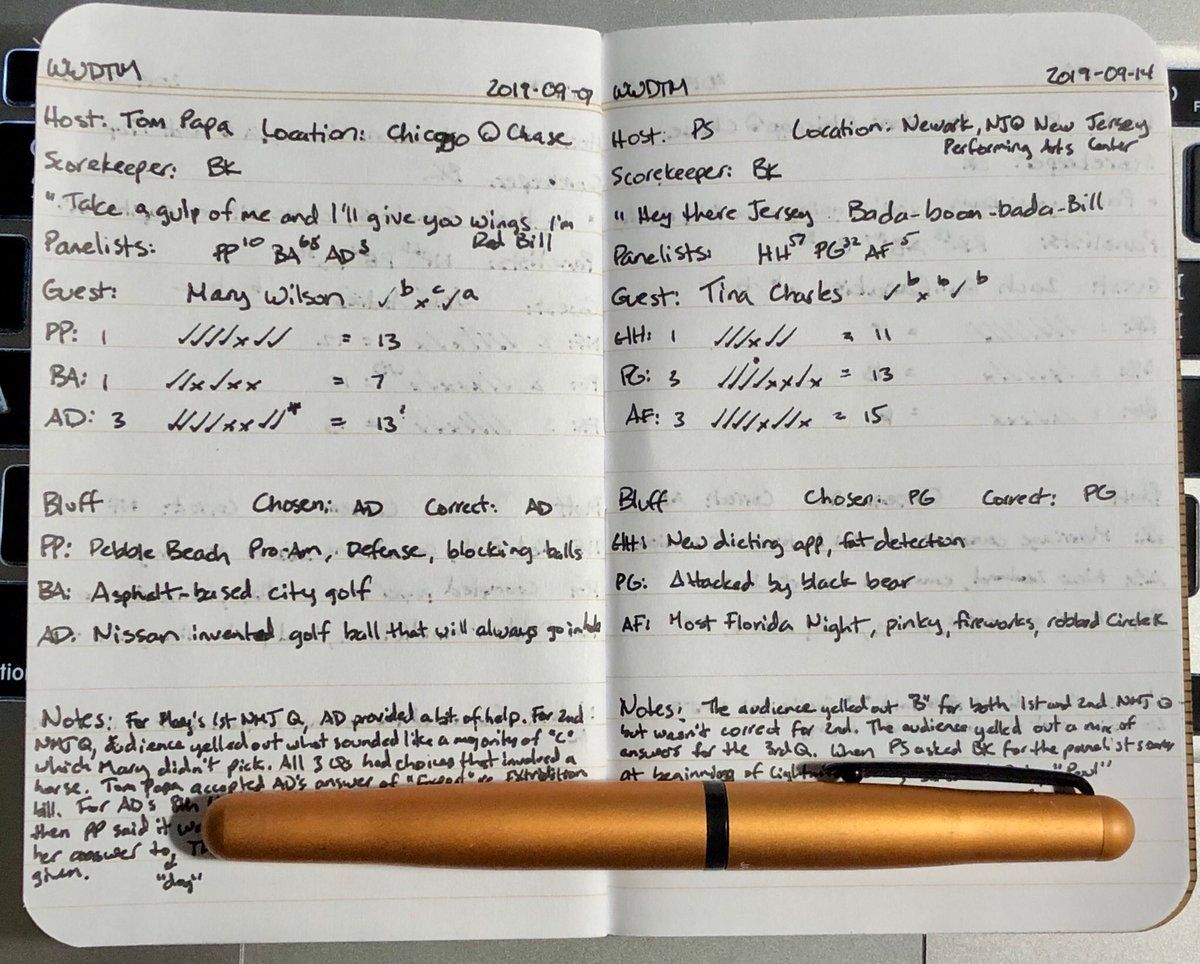 WWDTM
2019-09-0
Host: Tom Papa Location: Chicago @ Chase
Scorekeeper: BK
"Take a gulp of me and I'll give you wings. I'm
Red Bill
Panelists: PP10 BA68 AD3
Guest: Mary Wilson ✓b xc ✓a
PP: 1 ✓✓✓✓x✓✓ = 13
BA: 1 ✓✓x✓xx = 7
AD: 3 ✓✓✓xx✓✓* = 13
Bluff Chosen: AD Correct: AD
PP: Pebble Beach Pro-Am, Defense, blocking balls
BA: Asphalt-based city golf
AD: Nissan invented golf ball that will always go in hole
Notes: For Mary's 1st NMJ Q, AD provided a bit of help. For 2nd
NMJ Q, audience yelled out what sounded like a majority of "C"
which Mary didn't pick. All 3 Qs had choices that involved a
horse. Tom Papa accepted AD's answer of
bill. For AD's 8th
then PP said it
her answer to
given. "day"
WWDTM
2019-09-14
Host: PS Location: Newark, NJ @ New Jersey
Performing Arts Center
Scorekeeper: BK
"Hey there Jersey. Bada-boom-bada-Bill
Panelists: HH57 PG32 AF5
Guest: Tina Charles ✓b xb ✓b
HH: 1 ✓✓✓x✓✓ = 11
PG: 3 ✓✓✓✓xx✓x = 13
AF: 3 ✓✓✓✓x✓✓x = 15
Bluff Chosen: PG Correct: PG
HH: New dieting app, fat detection
PG: Attacked by black bear
AF: Most Florida Night, pinky, fireworks, robbed Circle K
Notes: The audience yelled out "B" for both 1st and 2nd NMJ Q
but wasn't correct for 2nd. The audience yelled out a mix of
answers for the 3rd Q. When PS asked BK for the panelist scores
at beginning of